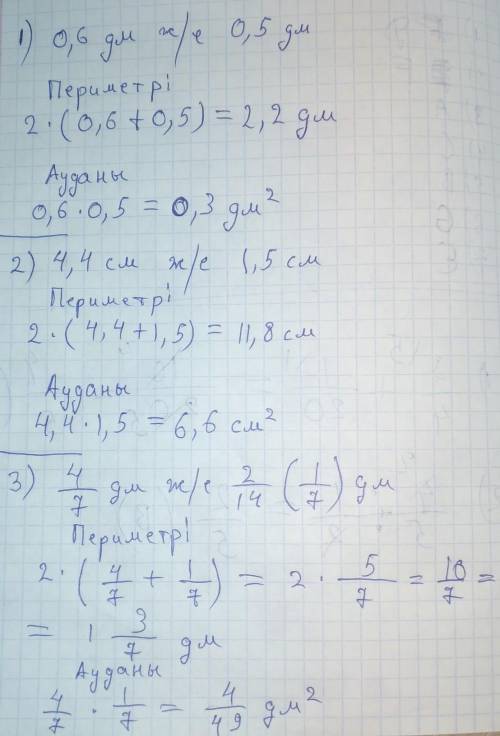 1) 0,6 дм ж/е 0,5 дм
Периметрі
2·(0,6+0,5)=2,2 дм
Ауданы
0,6·0,5=0,3 дм²
2) 4,4 см ж/е 1,5 см
Периметрі
2·(4,4+1,5)=11,8 см
Ауданы
4,4·1,5=6,6 см²
3) 4/7 дм ж/е 2/14 (1/7) дм
Периметрі
2·(4/7+1/7)=2·5/7=10/7=
=1 3/7 дм
Ауданы
4/7·1/7=4/49 дм²